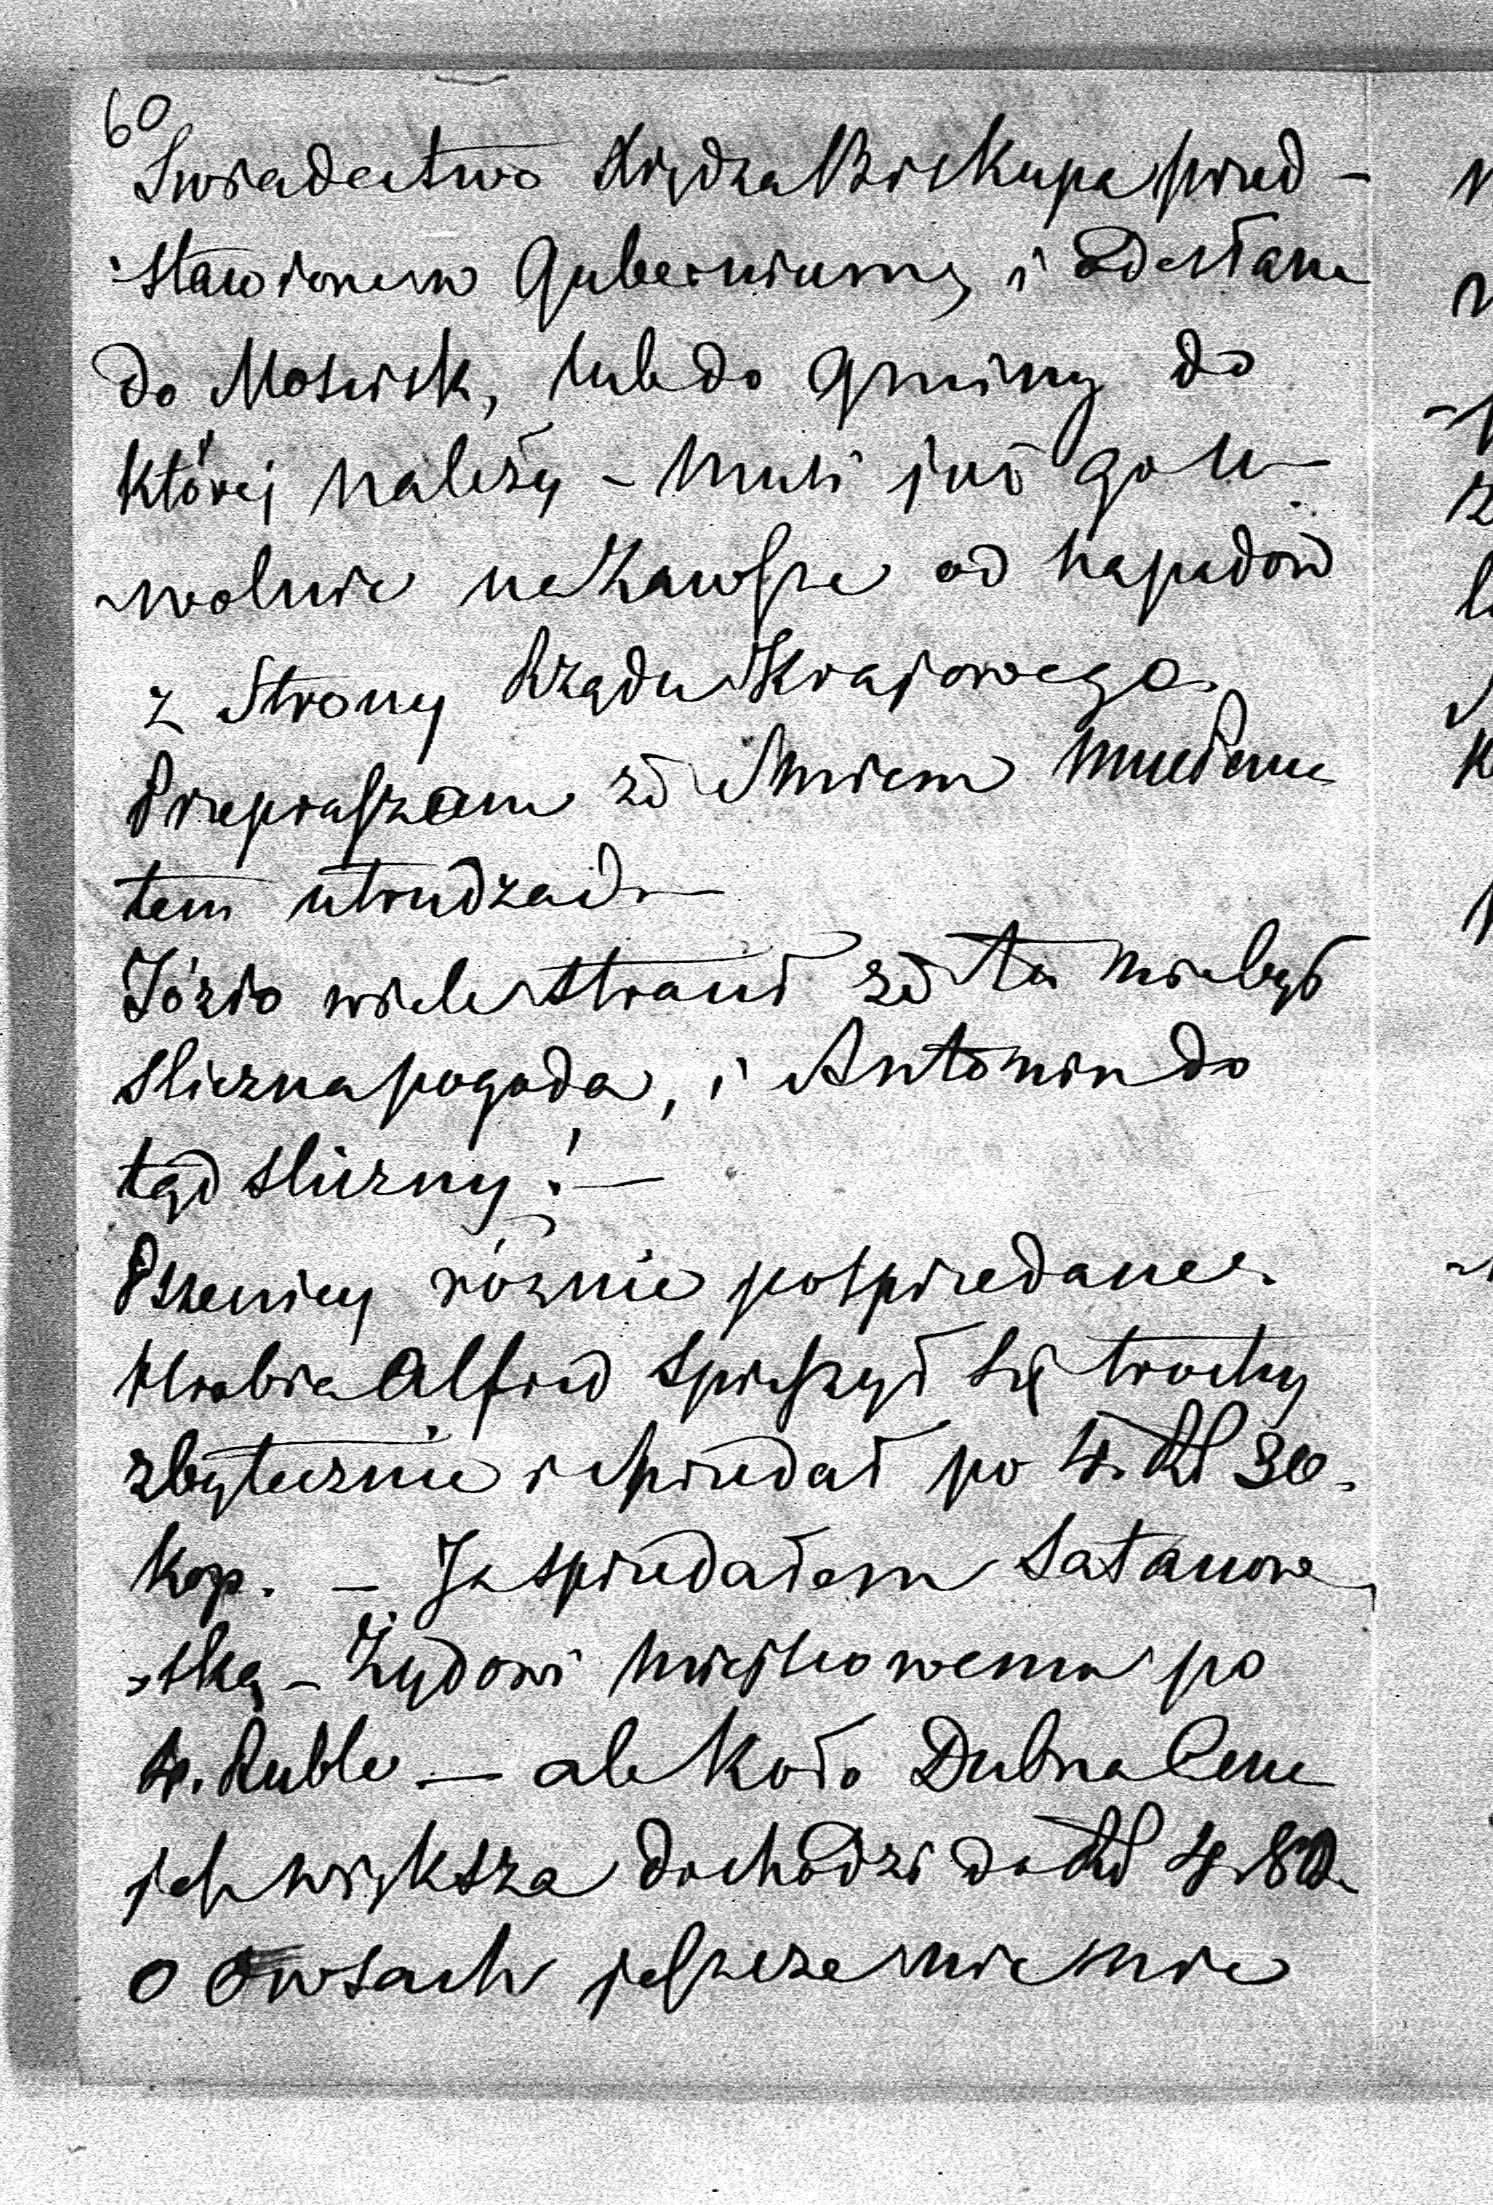 60
Swiadectwo Xiędza Biskupa przed-
stawionem Gubernium, i odesłane
do Moscisk, lub do gminy do
której należy - musi już go u-
wolnic na zawsze od napadów
z Strony Rządu Krajowego.
Przepraszam że Smiem
tem utrudzać -
Józio wiele stracił że tu nie był
sliczna pogoda, i Antonin do
tąd sliczny! -
Pszenicy róznie posprzedane.
Hrabia Alfred spieszył się trochy
zbytecznie i sprzedał po 4. Rl 30.
Kop. - Ja sprzedałem Satanow
ską - Żydowi miejscowemu po
4. Ruble - ale koło Dubna Cena
ich większa dochodzi do Rl 4. 80.
o Owsach jeszcze nic nie